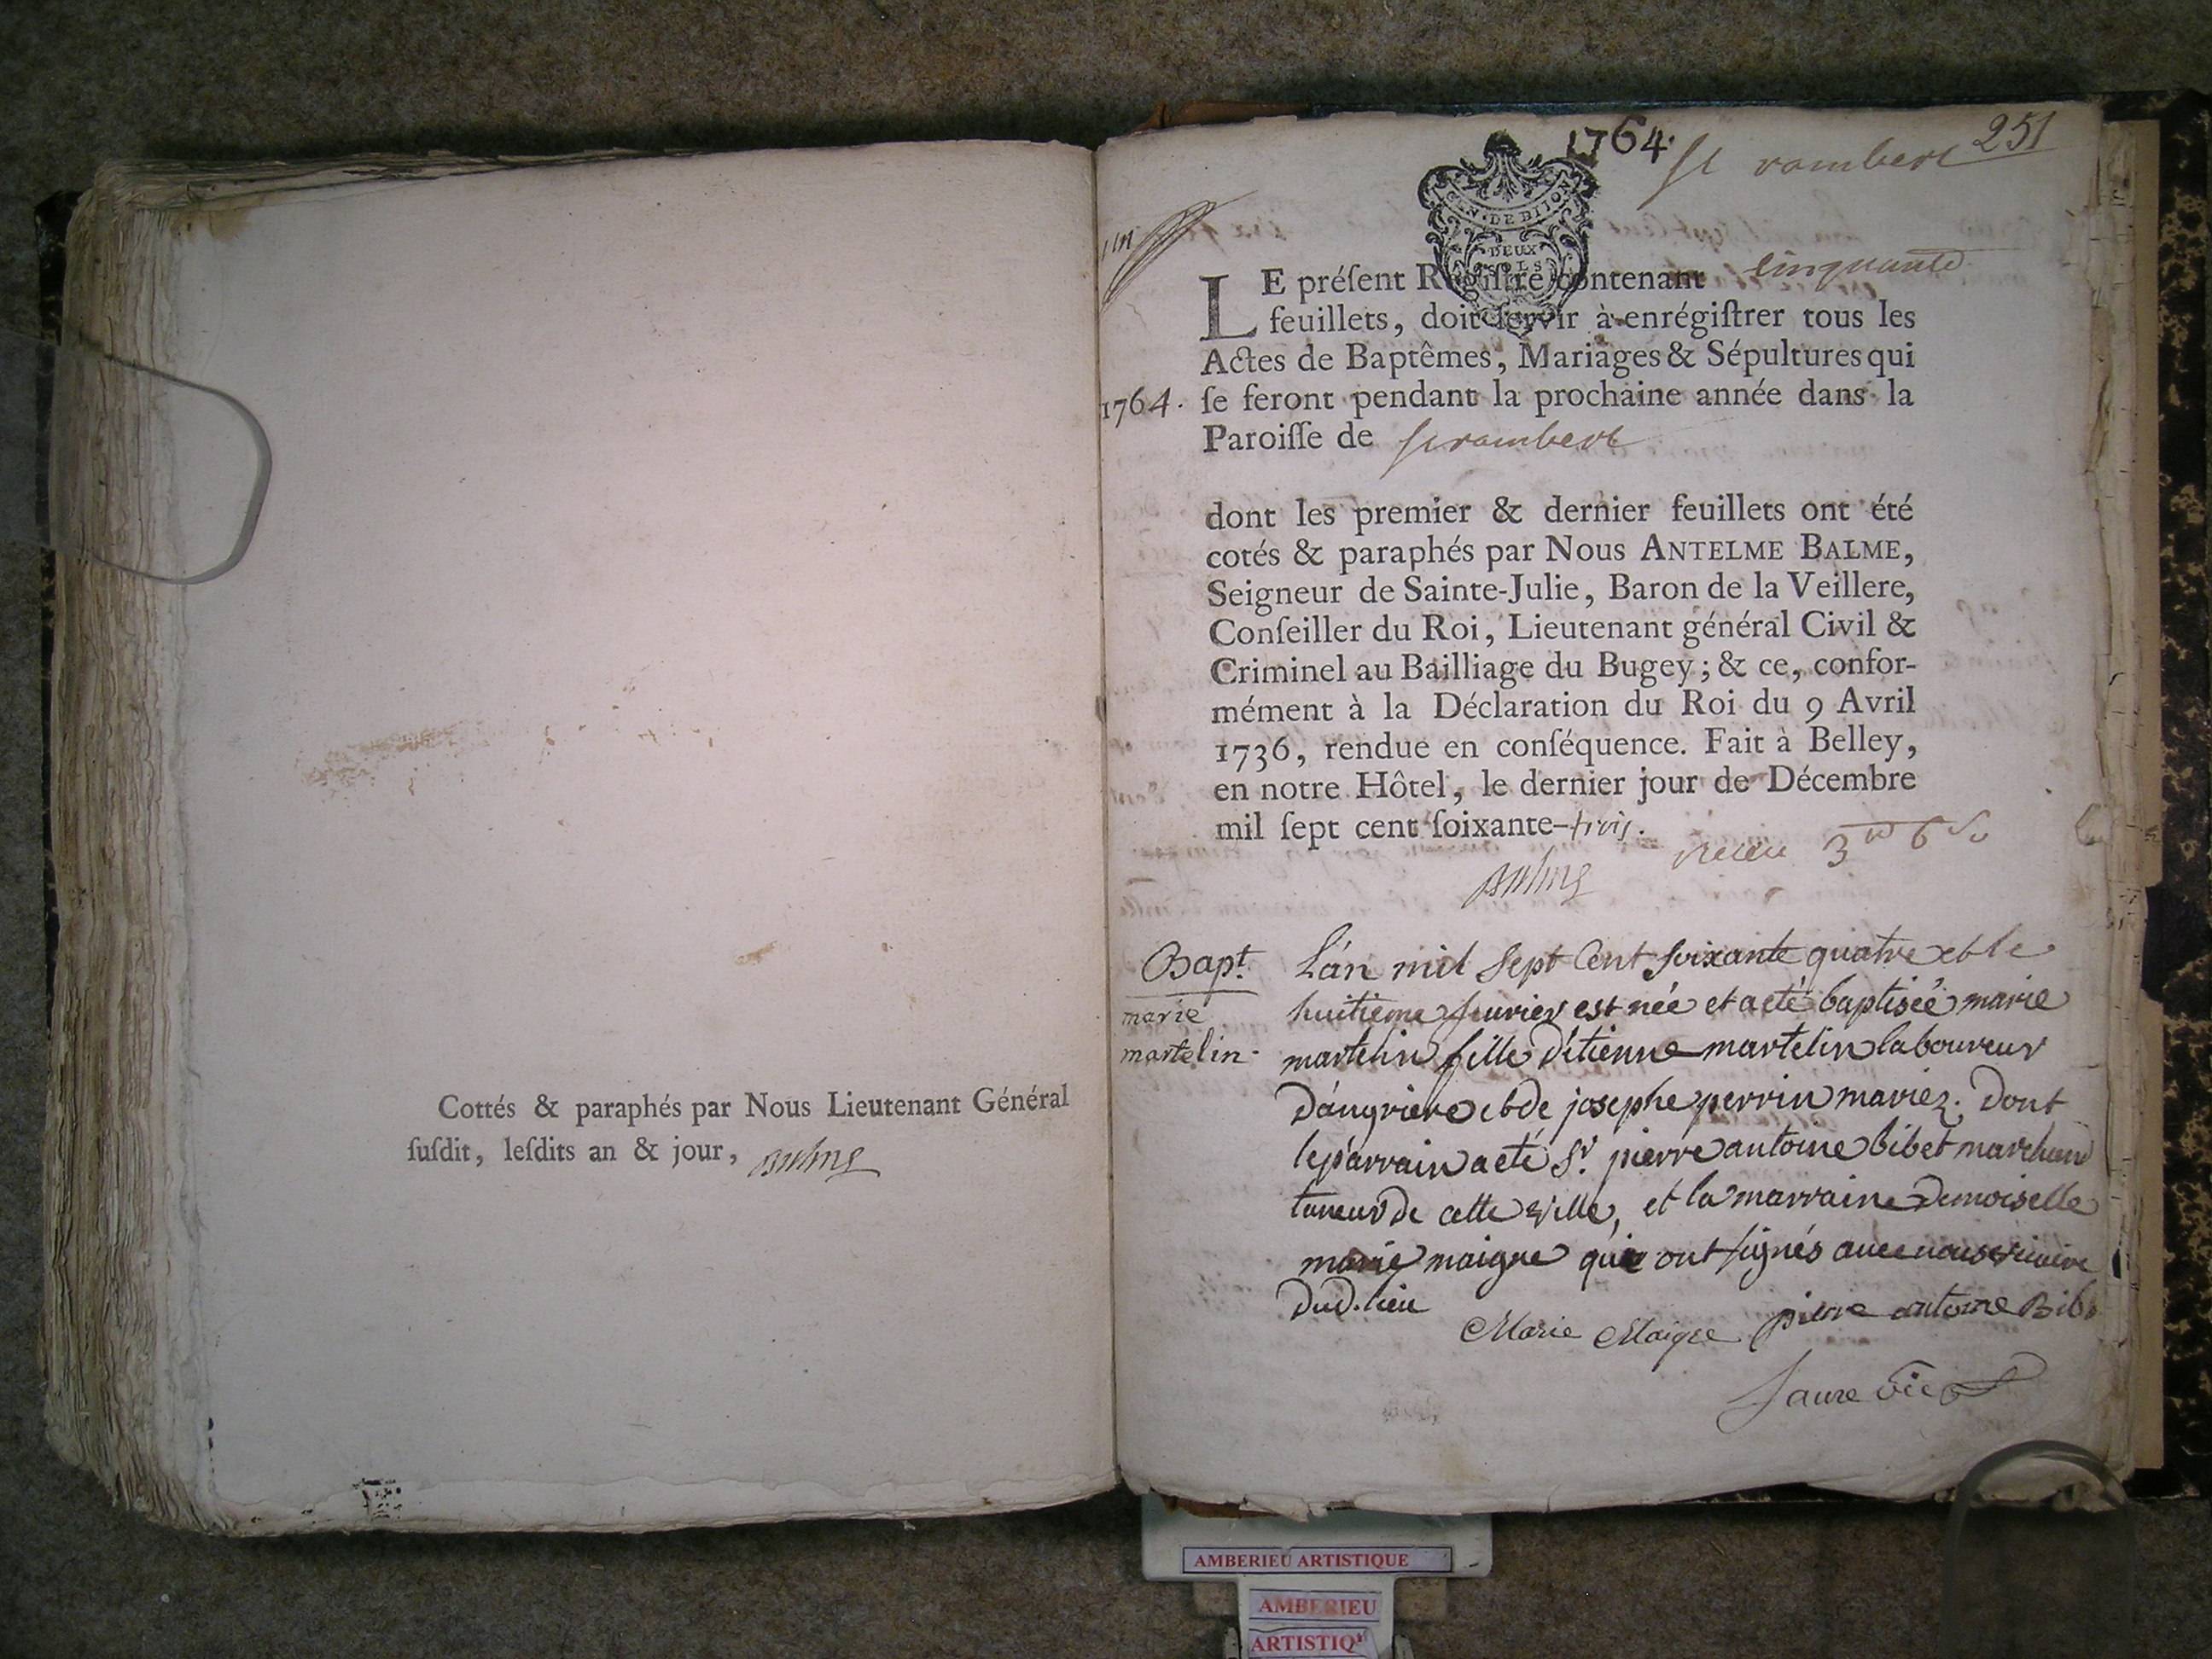 Cottés & paraphés par Nous Lieutenant Général
ſuſdit, leſdits an & jour,
1764.
St rambert
251
GEN. DE DIJON
DEUX
SOLS
LE préſent Regiſtre contenant cinquante
feuillets, doit ſervir à enrégiſtrer tous les
Actes de Baptêmes, Mariages & Sépultures qui
1764. ſe feront pendant la prochaine année dans la
Paroiſſe de St rambert
dont les premier & dernier feuillets ont été
cotés & paraphés par Nous ANTELME BALME,
Seigneur de Sainte-Julie, Baron de la Veillere,
Conſeiller du Roi, Lieutenant général Civil &
Criminel au Bailliage du Bugey; & ce, confor-
mément à la Déclaration du Roi du 9 Avril
1736, rendue en conſéquence. Fait à Belley,
en notre Hôtel, le dernier jour de Décembre
mil ſept cent ſoixante-trois.
Balme
Bapt.
marie
martelin.
L'an mil Sept Cent soixante quatre et le
huitieme est née et a eté baptisée marie
martelin fille d'étienne martelin laboureur
D'angriere et de josephe perrin mariez. Dont
le parrain a eté Sr. pierre antoine bibet marchand
taneur De cette ville, et la marraine Demoiselle
marie maigre qui ont signés avec nous vicaire
Dud. lieu
Marie Maigre pierre antoine Bib
Faure vic
AMBERIEU ARTISTIQUE
AMBERIEU
ARTISTIQ